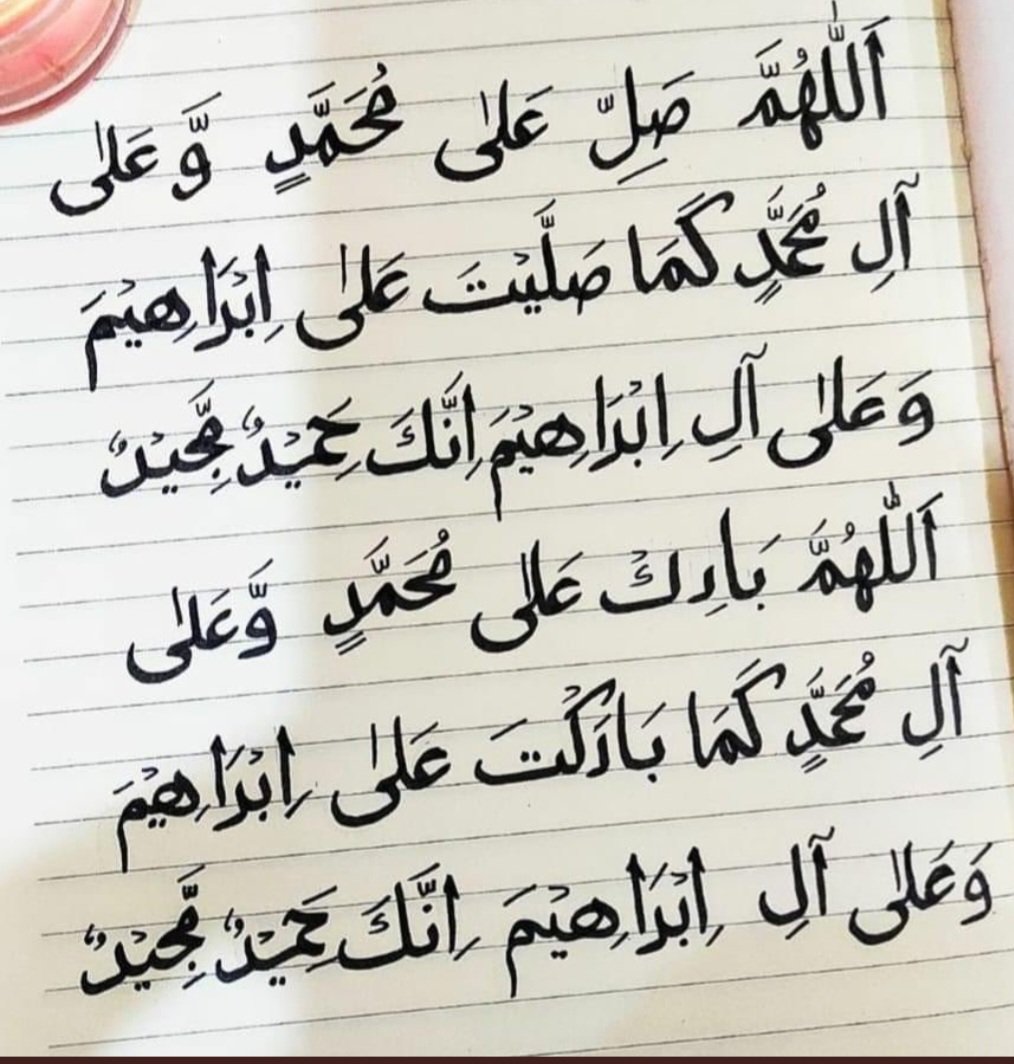 اَللّٰهُمَّ صَلِّ عَلٰى مُحَمَّدٍ وَّعَلٰى
آلِ مُحَمَّدٍ كَمَا صَلَّيْتَ عَلٰى اِبْرَاهِيْمَ
وَعَلٰى آلِ اِبْرَاهِيْمَ اِنَّكَ حَمِيْدٌ مَّجِيْدٌ
اَللّٰهُمَّ بَارِكْ عَلٰى مُحَمَّدٍ وَّعَلٰى
آلِ مُحَمَّدٍ كَمَا بَارَكْتَ عَلٰى اِبْرَاهِيْمَ
وَعَلٰى آلِ اِبْرَاهِيْمَ اِنَّكَ حَمِيْدٌ مَّجِيْدٌ